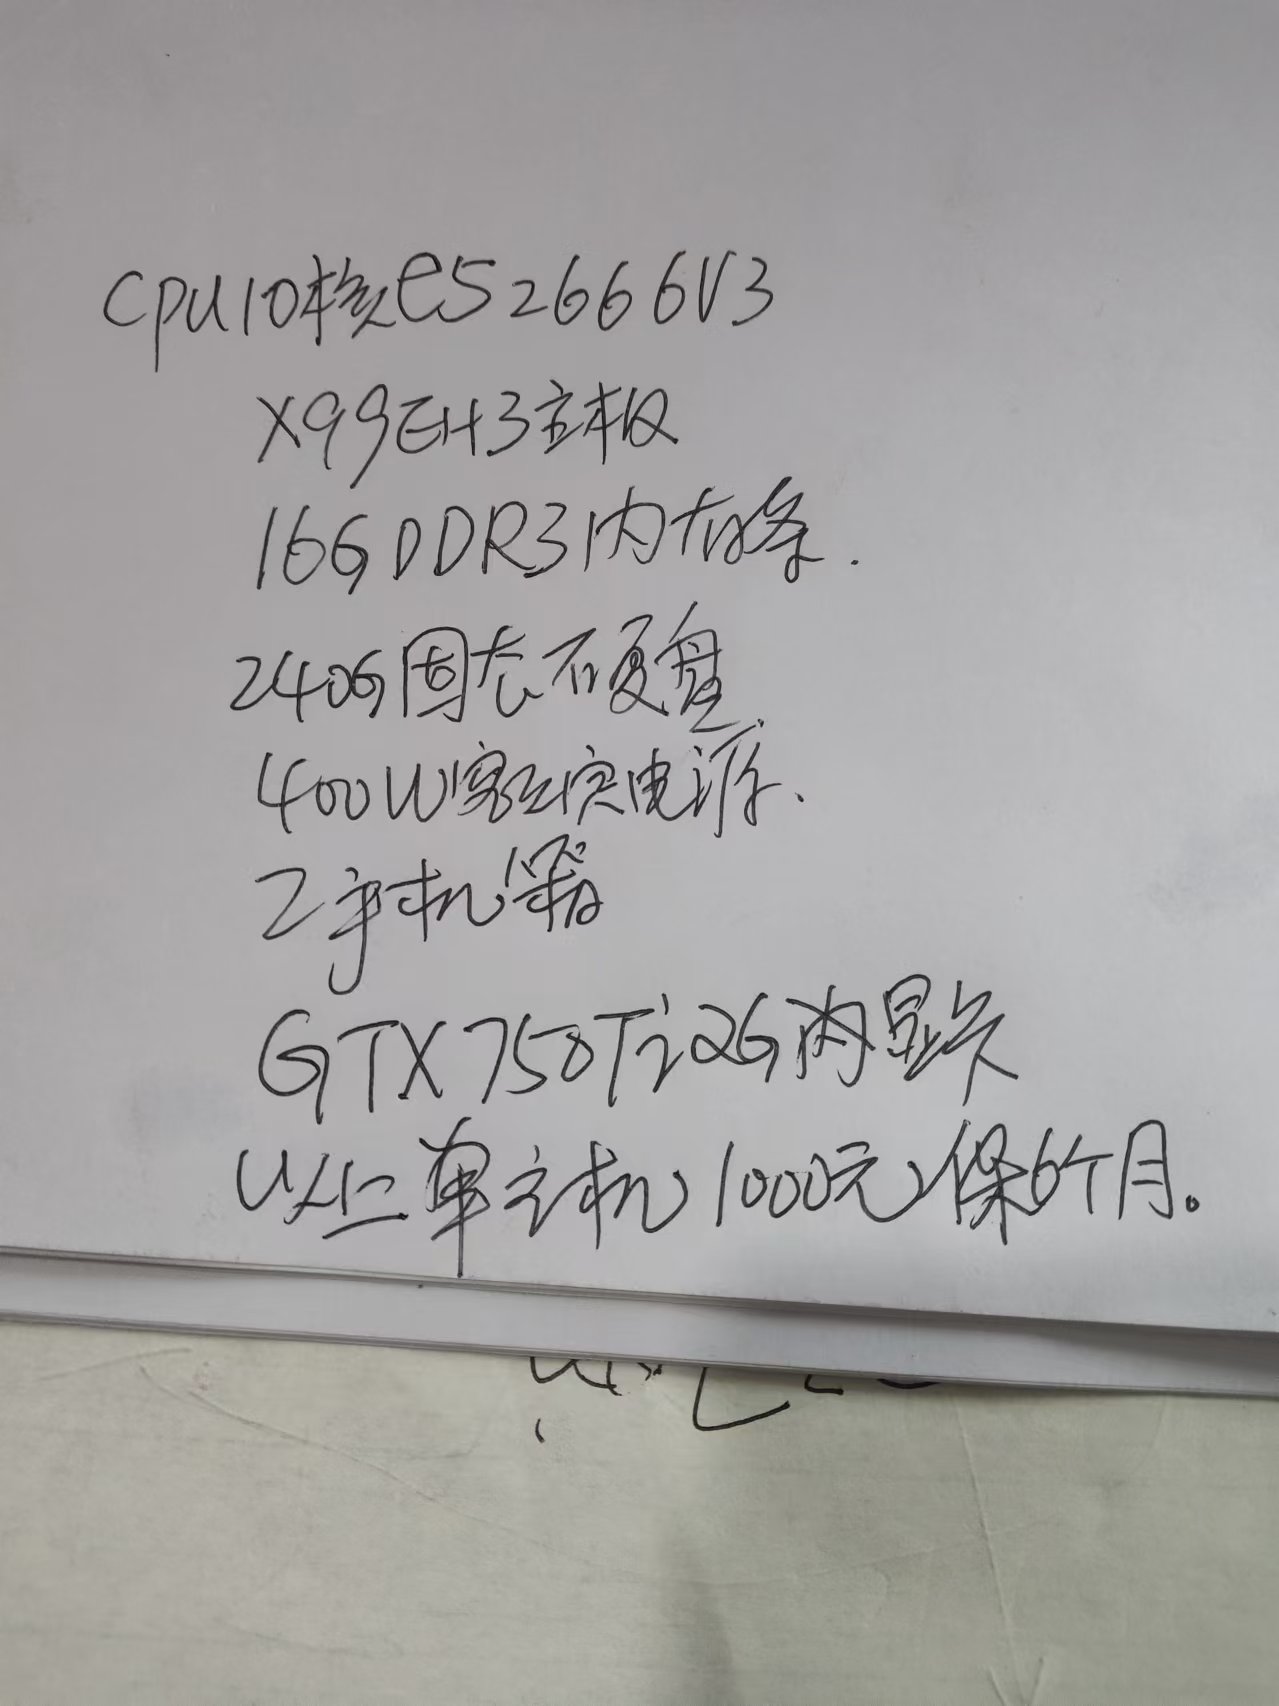 CPU10核e52666V3
X99EH3主板
16GDDR3内存条.
240G固态硬盘
400W额定电源、
2手机箱
GTX750Ti2G内显卡
以上单主机1000元保6个月。